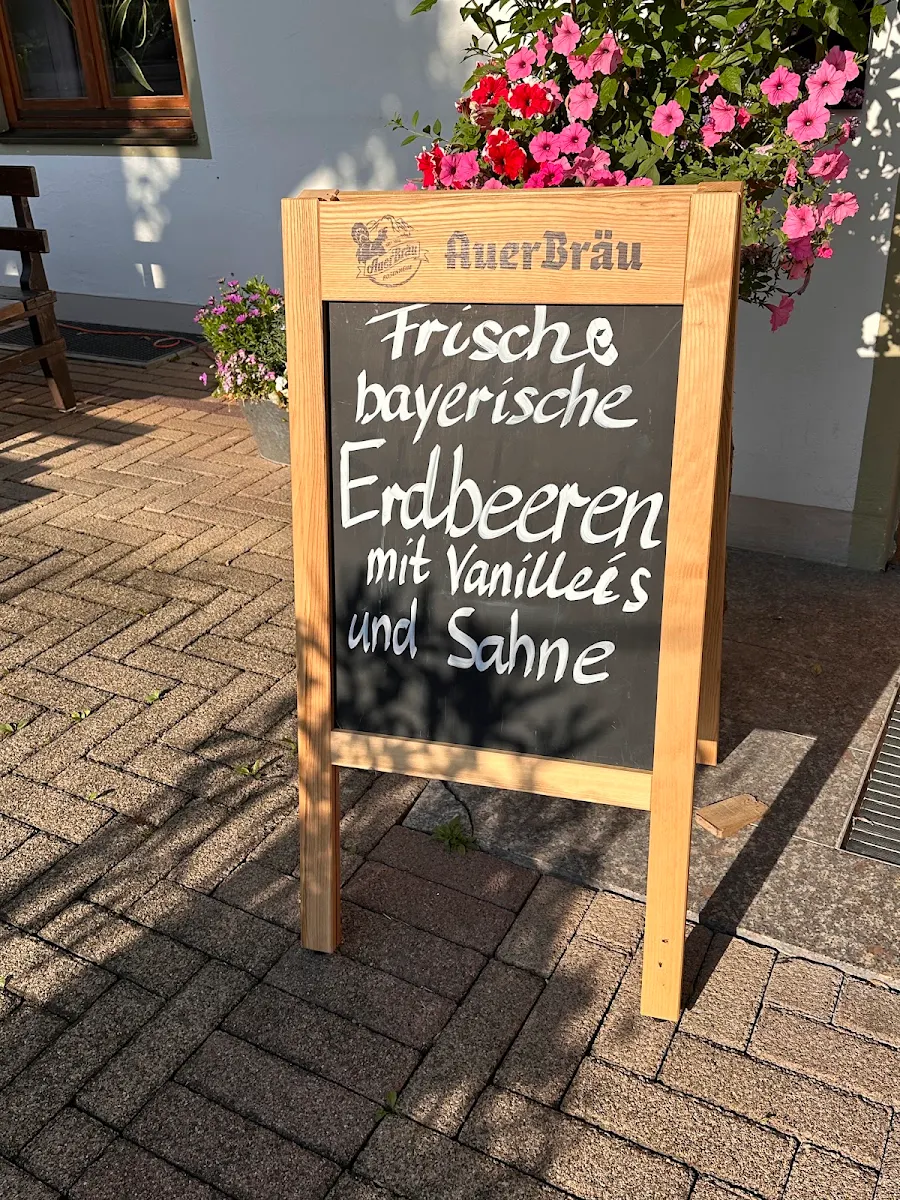 AuerBräu
ROSENHEIM
AuerBräu
Frische
bayerische
Erdbeeren
mit Vanilleeis
und Sahne